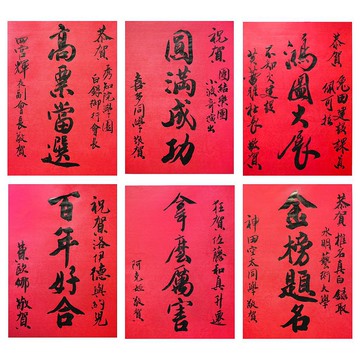 恭賀
秀知院學園
白銀御行會長
高票當選
四宮輝夜副會長敬賀
祝賀
團結樂團
小波奇演出
圓滿成功
喜多同學敬賀
恭賀
兔田建設課長
佩可拉
鴻圖大展
不知火建設
芙蕾雅社長敬賀
祝賀洛伊德與約兒
百年好合
菲歐娜敬賀
狂賀佐藤和真升遷
拿麼厲害
阿克婭敬賀
恭賀椎名真白錄取
水明藝術大學
金榜題名
神田空太同學敬賀